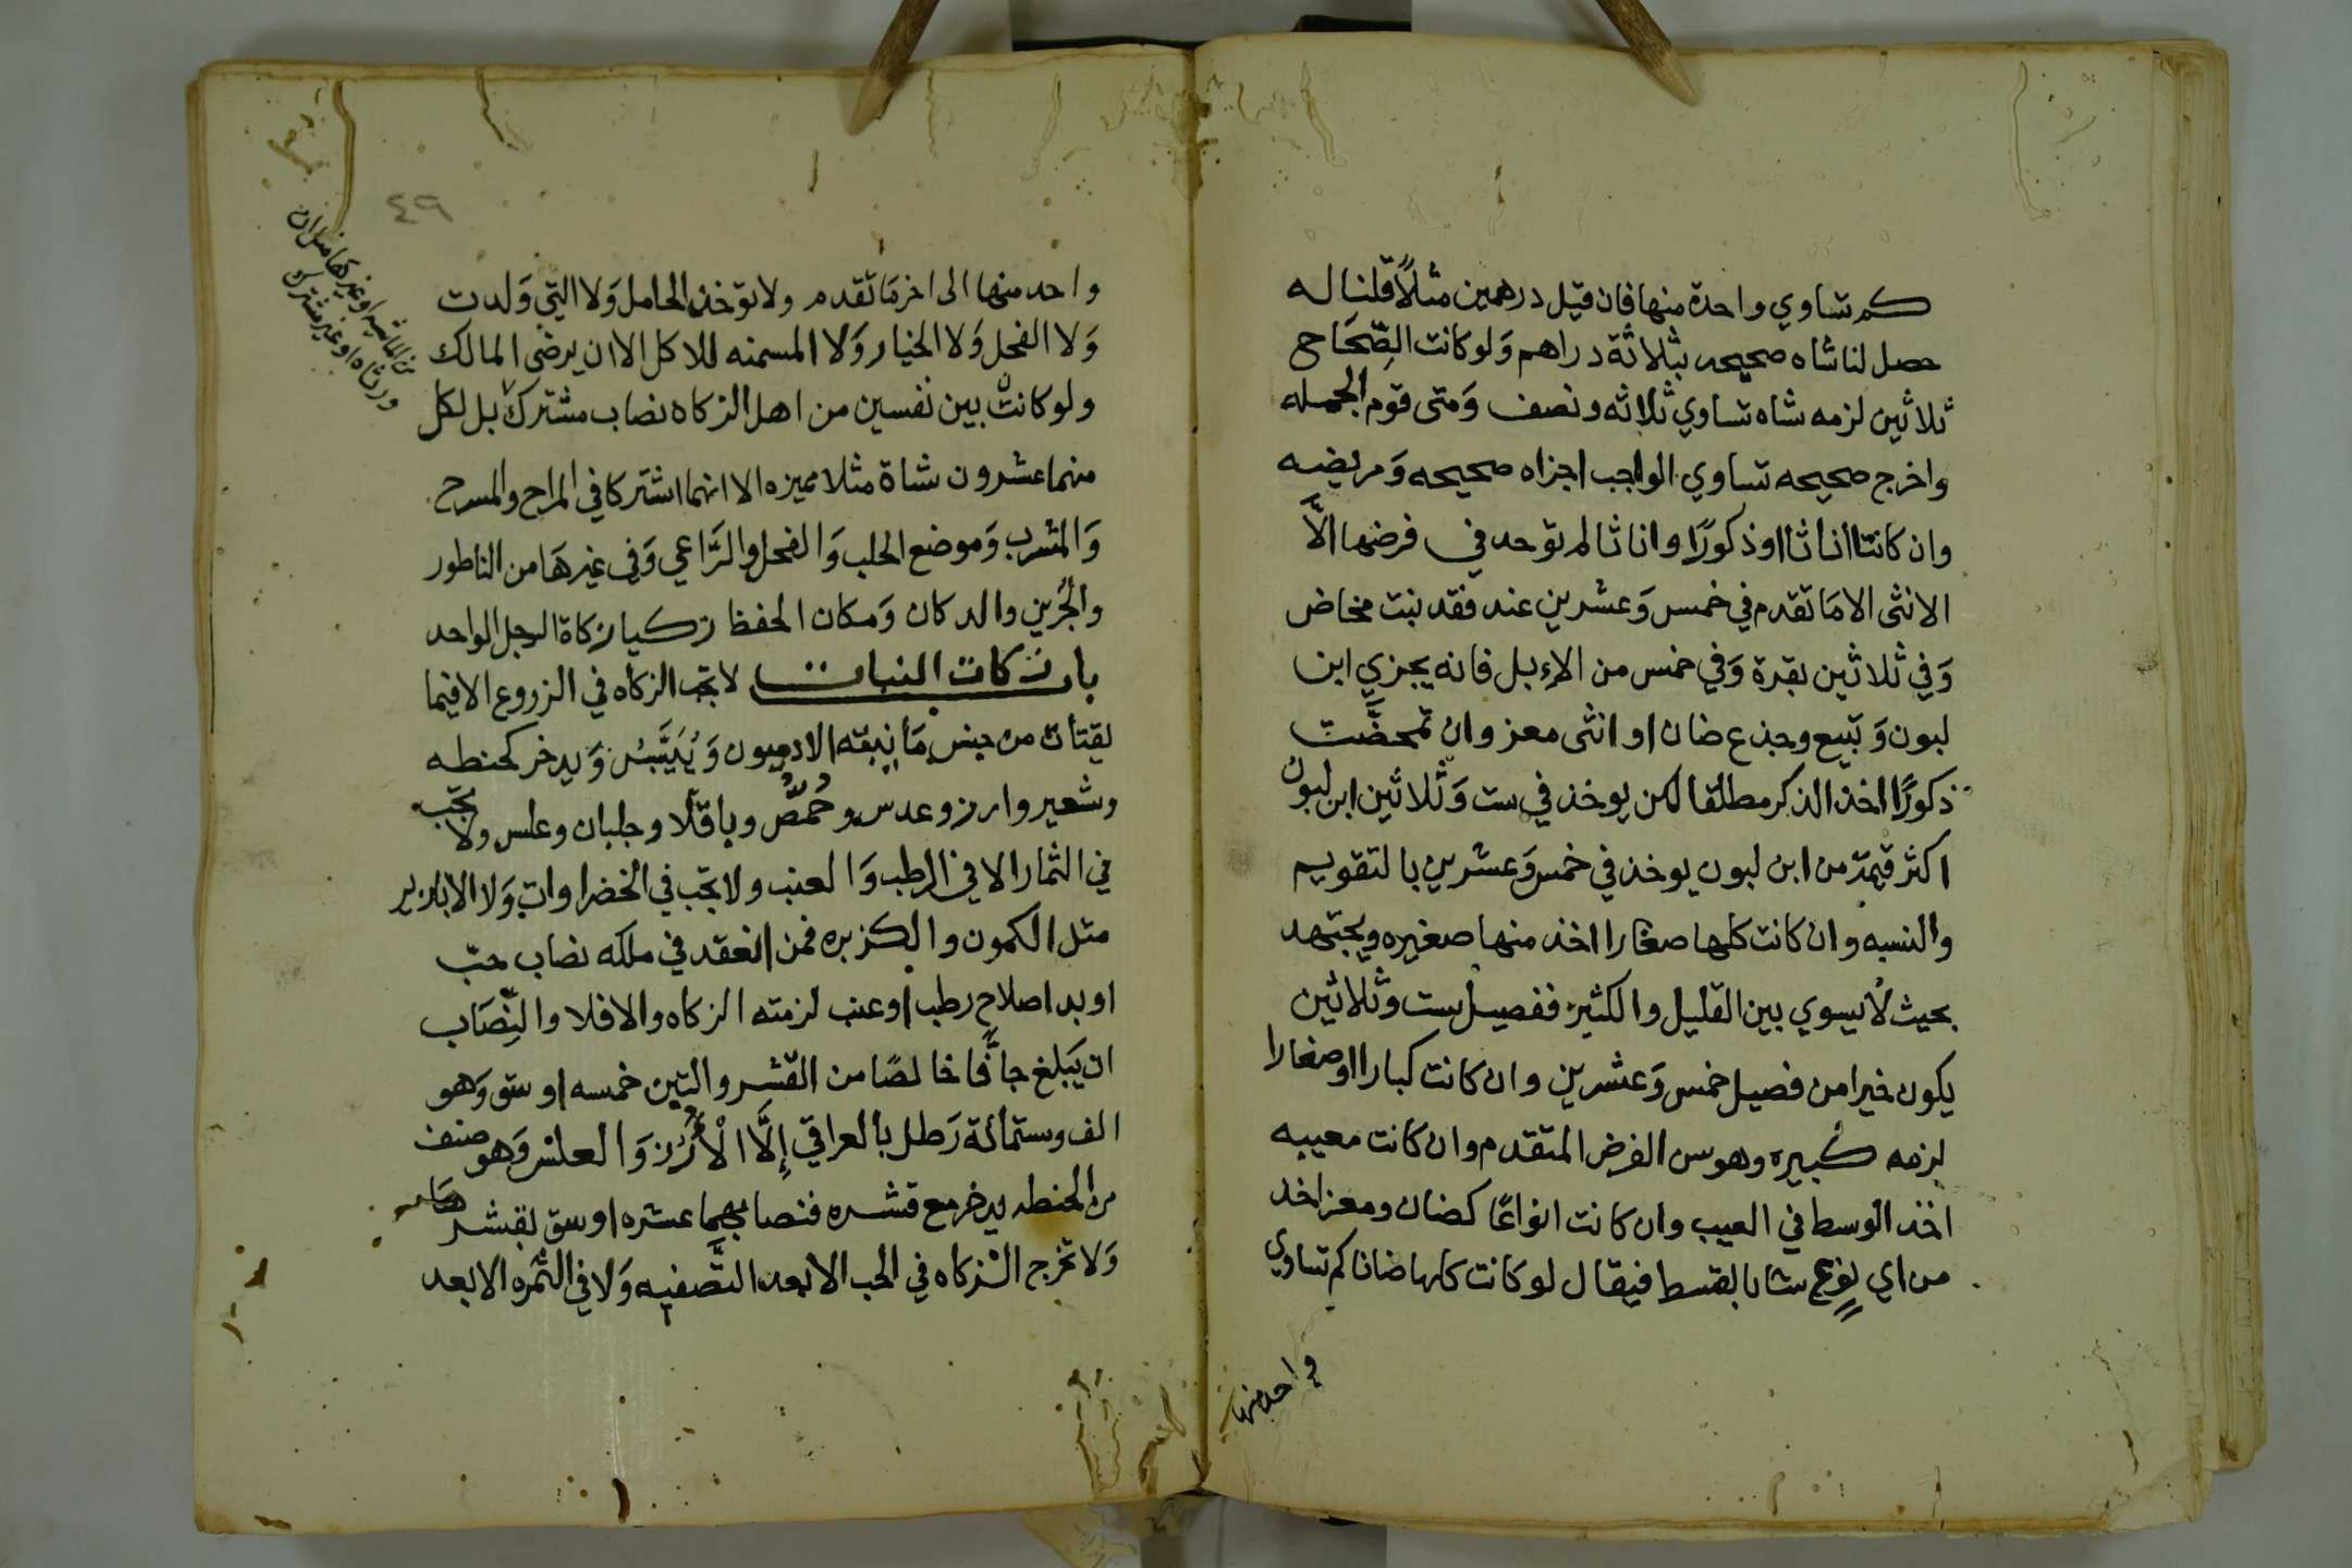 كم تساوي واحدة منها فان قيل درهمين مثلًا قلنا له
حصل لنا شاه صحيحه بثلاثة دراهم وَلو كانت الصِّحَاح
ثلاثين لزمه شاه تساوي ثلاثه ونصف وَمتى قوم الجمله
واخرج صحيحه تساوي الواجب اجزاه صحيحه وَمريضه
وان كانت اناثا او ذكورًا واناثا لم توخذ في فرضها الَّا
الانثى الا مَا تقدم في خمس وَعشرين عند فقد بنت مخاض
وَفي ثلاثين بقرة وَفي خمس من الإبل فانه يجزي ابن
لبون وَتبيع وجذع ضان او انثى معز وان تمحضَّت
ذكورًا اخذ الذكر مطلقا لكن يوخذ في ست وَثلاثين ابن لبون
اكثر قيمة من ابن لبون يوخذ في خمس وَعشرين بالتقويم
والنسبه وان كانت كلها صغارا اخذ منها صغيره ويجتهد
بحيث لا يسوي بين القليل والكثير ففصيل ست وثلاثين
يكون خيرا من فصيل خمس وَعشرين وان كانت كبارا او صغارا
لزمه كبيره وهو سن الفرض المتقدم وان كانت معيبه
اخذ الوسط في العيب وان كانت انواعًا كضان ومعز اخذ
من اي نوع شا بالقسط فيقال لو كانت كلها ضانا كم تساوي
واحد منها
٤٩
واحد منها الى اخر مَا تقدم ولا توخذ الحامل وَلا التي وَلدت
وَلا الفحل وَلا الخيار وَلا المسمنه للاكل الا ان يرضى المالك
ولو كانت بين نفسين من اهل الزكاه نصاب مشترك بل لكل
منهما عشرون شاة مثلا مميزه الا انهما اشتركا في المراح والمسرح
وَالمشرب وَموضع الحلب وَالفحل والرَّاعي وَفي غيرهَا من الناطور
والجُرين والدكان وَمكان الحفظ زكيا زكاة الرجل الواحد
باب زكات النبات لا تجب الزكاه في الزروع الا فيما
يقتات من جنس مَا ينبته الادميون وَيُيَبَّسُ وَيدخر كحنطه
وشعير وارز وعدس وحُمصُّ وباقلَّا وجلبان وعلس ولا تجب
في الثمار الا في الرطب وَالعنب ولا تجب في الخضراوات وَلا الابازير
مثل الكمون والكزبره فمن انعقد في ملكه نصاب حبّ
او بدا صلاح رطب او عنب لزمته الزكاه والا فلا والنِّصَاب
ان يَبلغ جافَّا خالصًا من القشر والتبن خمسه اوسق وَهو
الف وستمائة رَطل بالعراقي إِلَّا الْأُرْز وَالعلس وَهو صنف
من الحنطه يدخر مع قشره فنصابهما عشره اوسق بقشرهما
وَلا تخرج الزكاه في الحب الا بعد التَّصفيه وَلا في الثمره الا بعد